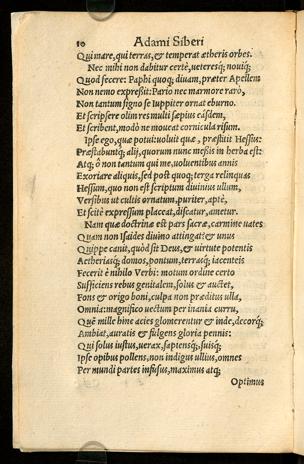 10 Adami Siberi
Qui mare, qui terras, & temperat ætheris orbes.
Nec mihi non dabitur certè, ueteresq; nouiq;
Quod fecere: Paphi quoq; diuam, præter Apellem
Non nemo expressit: Pario nec marmore rarò,
Non tantum signo se Iuppiter ornat eburno.
Et scripsere olim res multi sæpius easdem,
Et scribent, modò ne moueat cornicula risum.
Ipse ego, quæ potui uoluit quæ, præstitit Hessus:
Præstabuntq; alij, quorum nunc messis in herba est:
Atq; ô non tantum qui me, uoluentibus annis
Exoriare aliquis, sed post quoq; terga relinquas
Hessum, quo non est scriptum diuinius ullum,
Versibus ut cultis ornatum, puriter, aptè,
Et scitè expressum placeat, discatur, ametur.
Nam quæ doctrinæ est pars sacræ, carmine uates
Quam non Isaides diuino attingat & unus
Quippe canit, quòd sit Deus, & uirtute potentis
Aetheriasq; domos, pontum, terrasq; iacenteis
Fecerit è nihilo Verbi: motum ordine certo
Sufficiens rebus genitalem, solus & auctet,
Fons & origo boni, culpa non præditus ulla,
Omnia: magnifico uectum per inania curru,
Quē mille hinc acies glomerentur & inde, decorq;
Ambiat, auratis & fulgens gloria pennis:
Qui solus iustus, uerax, sapiensq;, suisq;
Ipse opibus pollens, non indigus ullius, omnes
Per mundi partes infusus, maximus atq;
Optimus